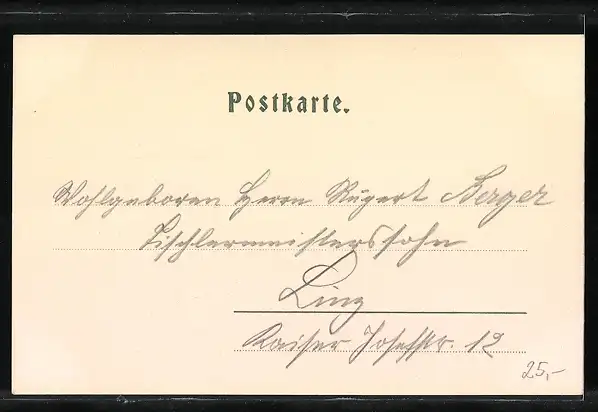 Postkarte.
Wohlgeboren Herrn Rupert Berger
Tischlermeisterssohn
Linz
Kaiser Josefstr. 12
25,-